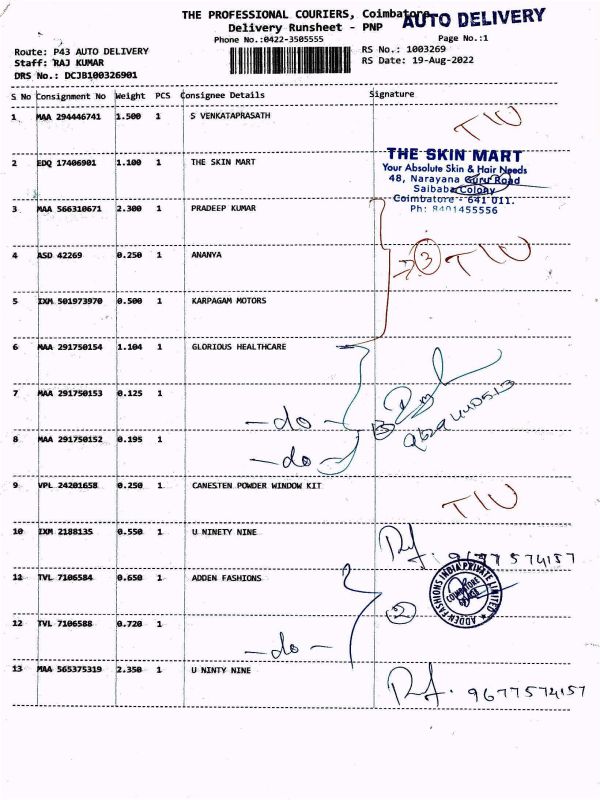 THE PROFESSIONAL COURIERS, Coimbatore
AUTO DELIVERY
Delivery Runsheet - PNP
Phone No.:0422-3505555
Page No.:1
Route: P43 AUTO DELIVERY
RS No.: 1003269
Staff: RAJ KUMAR
RS Date: 19-Aug-2022
DRS No.: DCJB100326901
S No Consignment No Weight PCS Consignee Details Signature
1 MAA 294446741 1.500 1 S VENKATAPRASATH
TIU
2 EDQ 17406901 1.100 1 THE SKIN MART
THE SKIN MART
Your Absolute Skin & Hair Needs
48, Narayana Guru Road
Saibaba Colony
Coimbatore - 641 011.
Ph: 8401455556
3 MAA 566310671 2.300 1 PRADEEP KUMAR
4 ASD 42269 0.250 1 ANANYA
3 TIU
5 IXM 501973970 0.500 1 KARPAGAM MOTORS
6 MAA 291750154 1.104 1 GLORIOUS HEALTHCARE
7 MAA 291750153 0.125 1
-do-
8 MAA 291750152 0.195 1
-do-
9 VPL 24201658 0.250 1 CANESTEN POWDER WINDOW KIT
TIU
10 IXM 2188135 0.550 1 U NINETY NINE
9677574157
11 TVL 7106584 0.650 1 ADDEN FASHIONS
ADDEN FASHIONS INDIA PRIVATE LIMITED
COIMBATORE
2
12 TVL 7106588 0.720 1
-do-
13 MAA 565375319 2.350 1 U NINTY NINE
9677574157